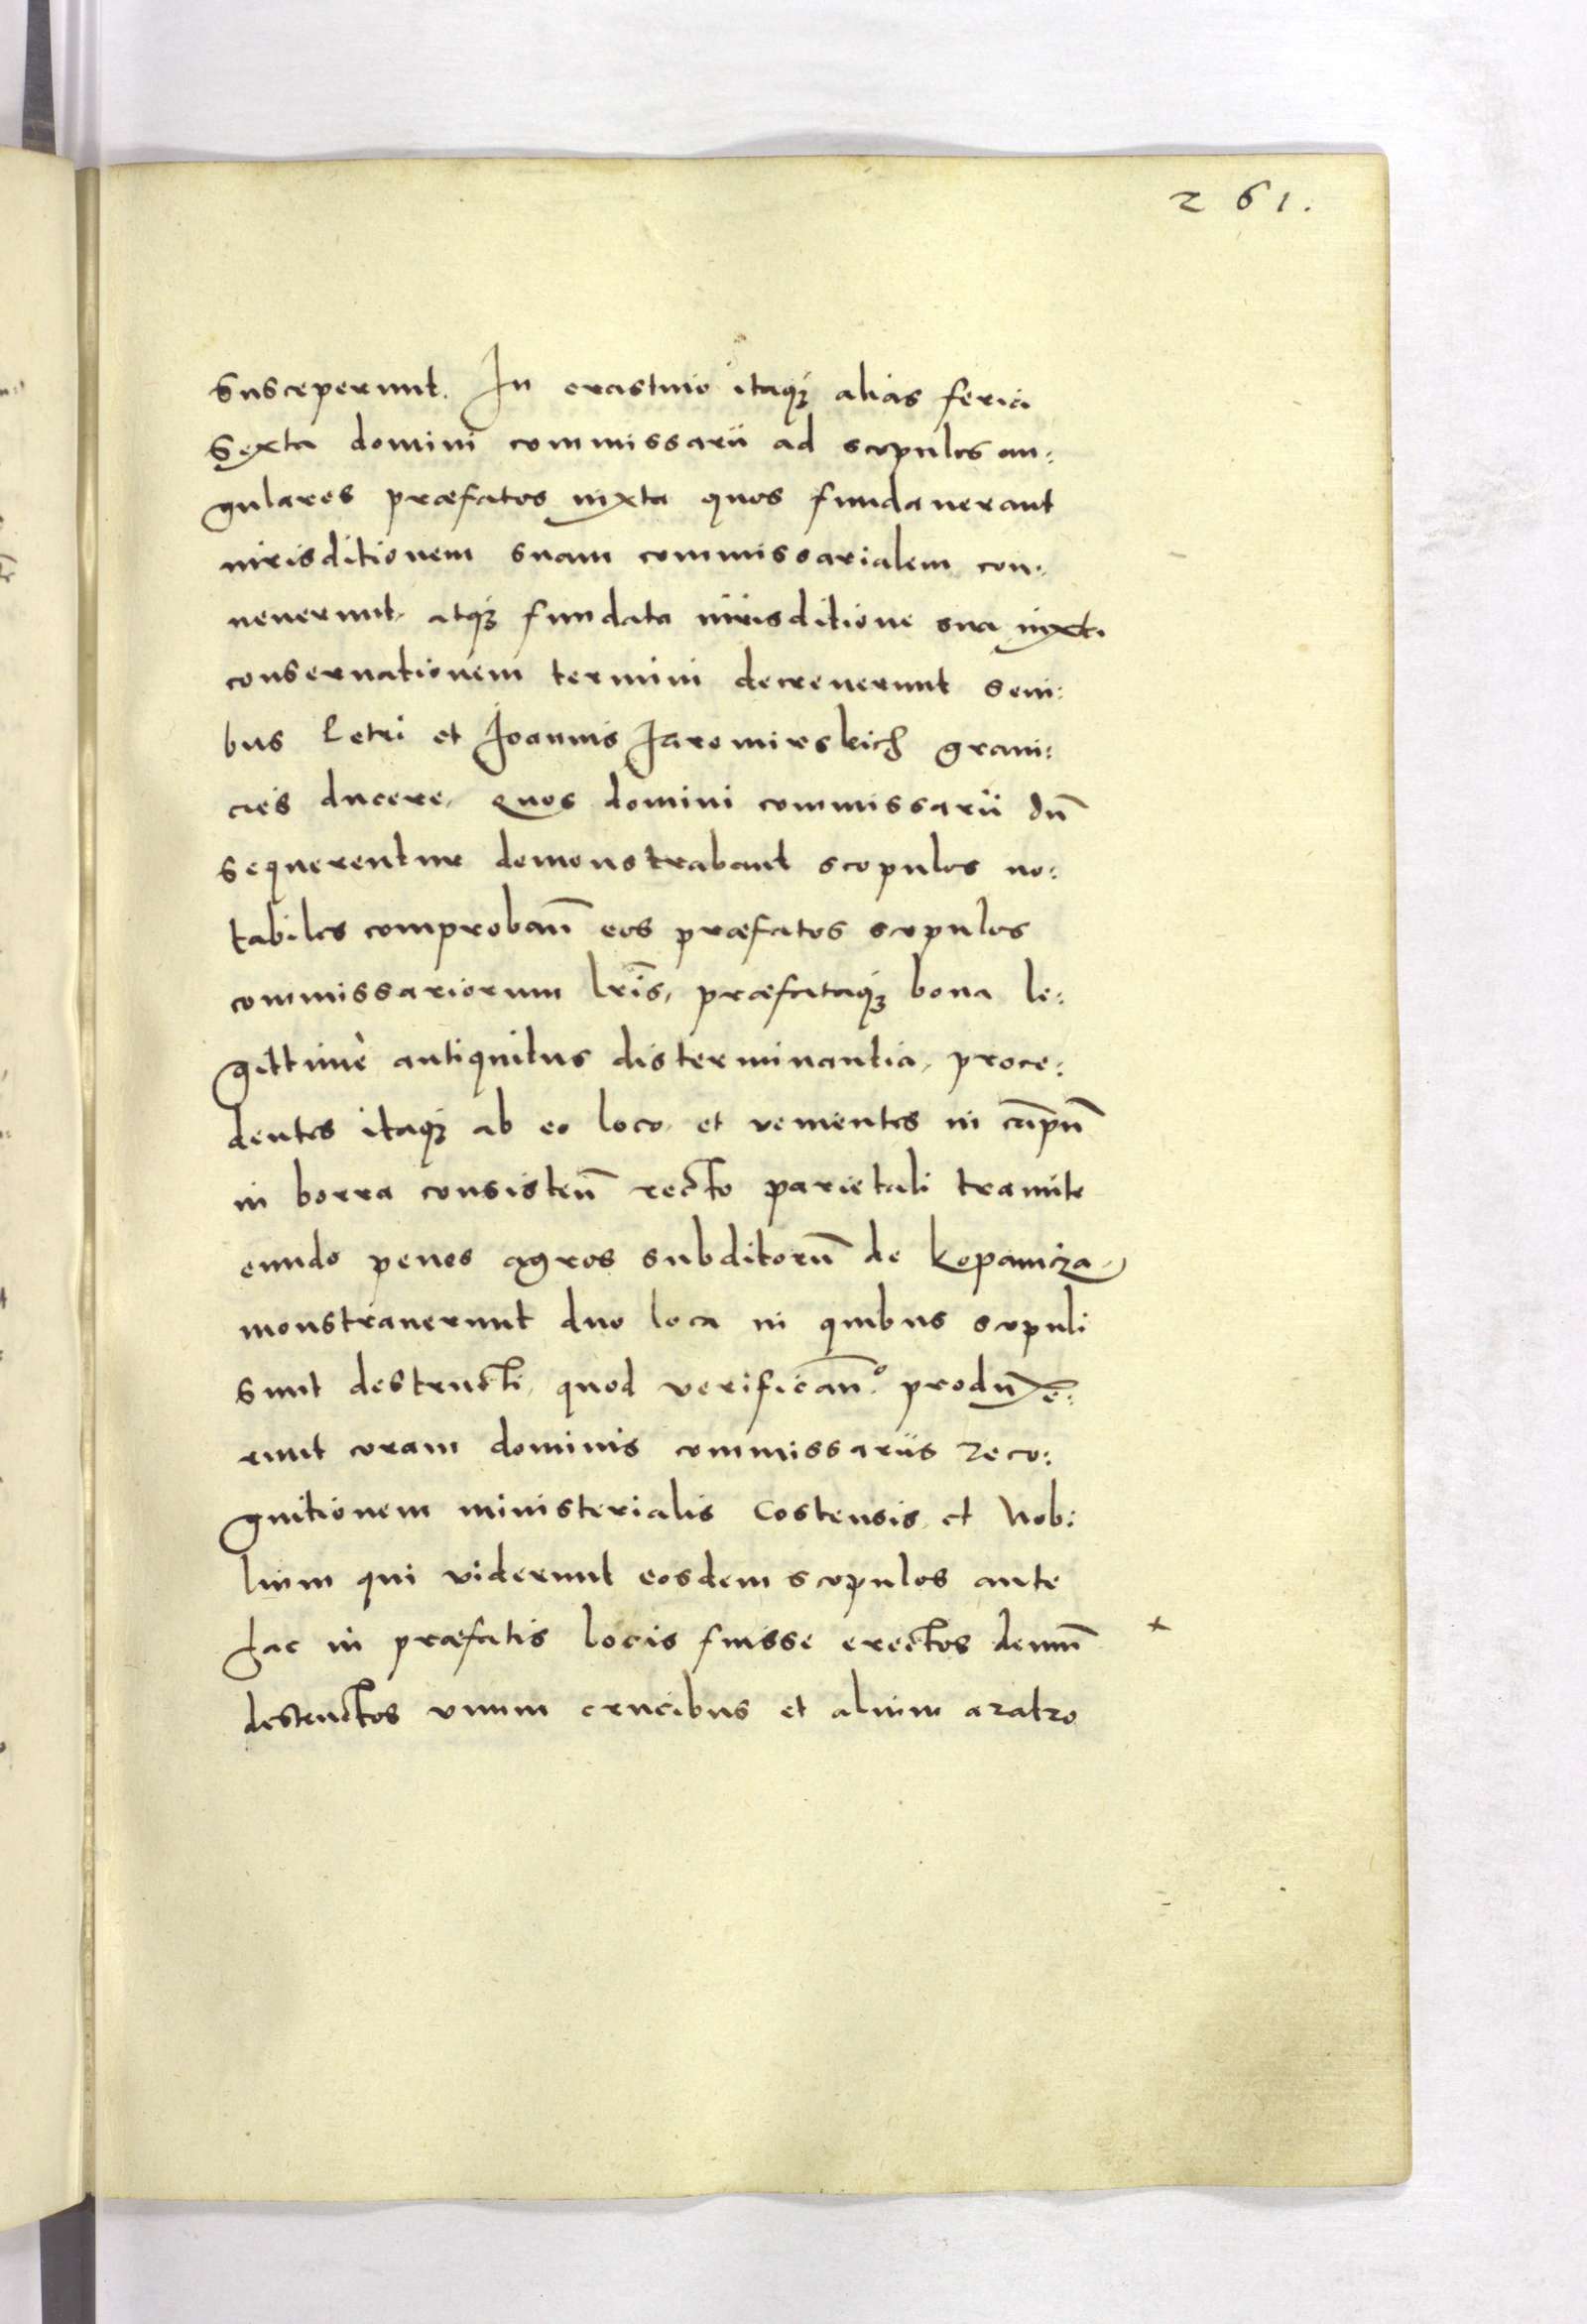 261.
susceperunt. In crastino itaqȝ alias feria
Sexta domini commissarii ad scopulos an:
gulares præfatos iuxta quos fundauerant
iurisditionem suam commissarialem con:
uenerunt, atqȝ fundata iurisditione sua iuxta
conseruationem termini decreuerunt seni:
bus Petri et Ioannis Jaromirskich grani:
cies ducere, quos domini commissarii dū
sequerentur demonstrabant scopulos no:
tabiles comproban̄ eos præfatos scopulos
commissariorum lr̄is, præfataqȝ bona le:
gittimè antiquitus disterminantia, proce:
dentes itaqȝ ab eo loco, et venientes in cāpū
in borra consisten̄ recto parietali tramite
eundo penes agros subditorū de kopanicza
monstrauerunt duo loca in quibus scopuli
sunt destructi, quod verifican̄.° produxe:
runt coram dominis commissariis reco:
gnitionem ministerialis Costensis, et Nobi:
lium qui viderunt eosdem scopulos ante
hac in præfatis locis fuisse erectos demū +
destructos vnum crucibus et alium aratro